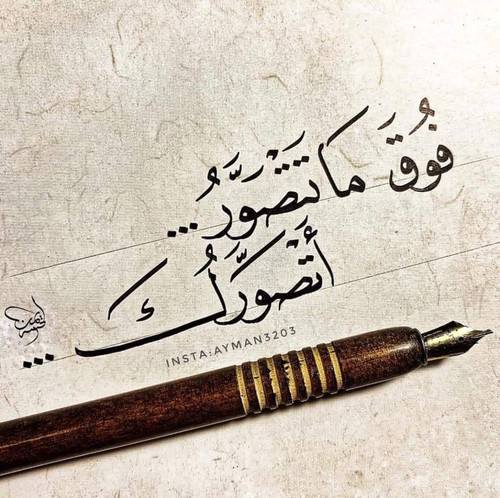 فُوقَ مَا تَتْصَوَّرُ...
أَتْصَوَّرُكْ...
INSTA:AYMAN3203